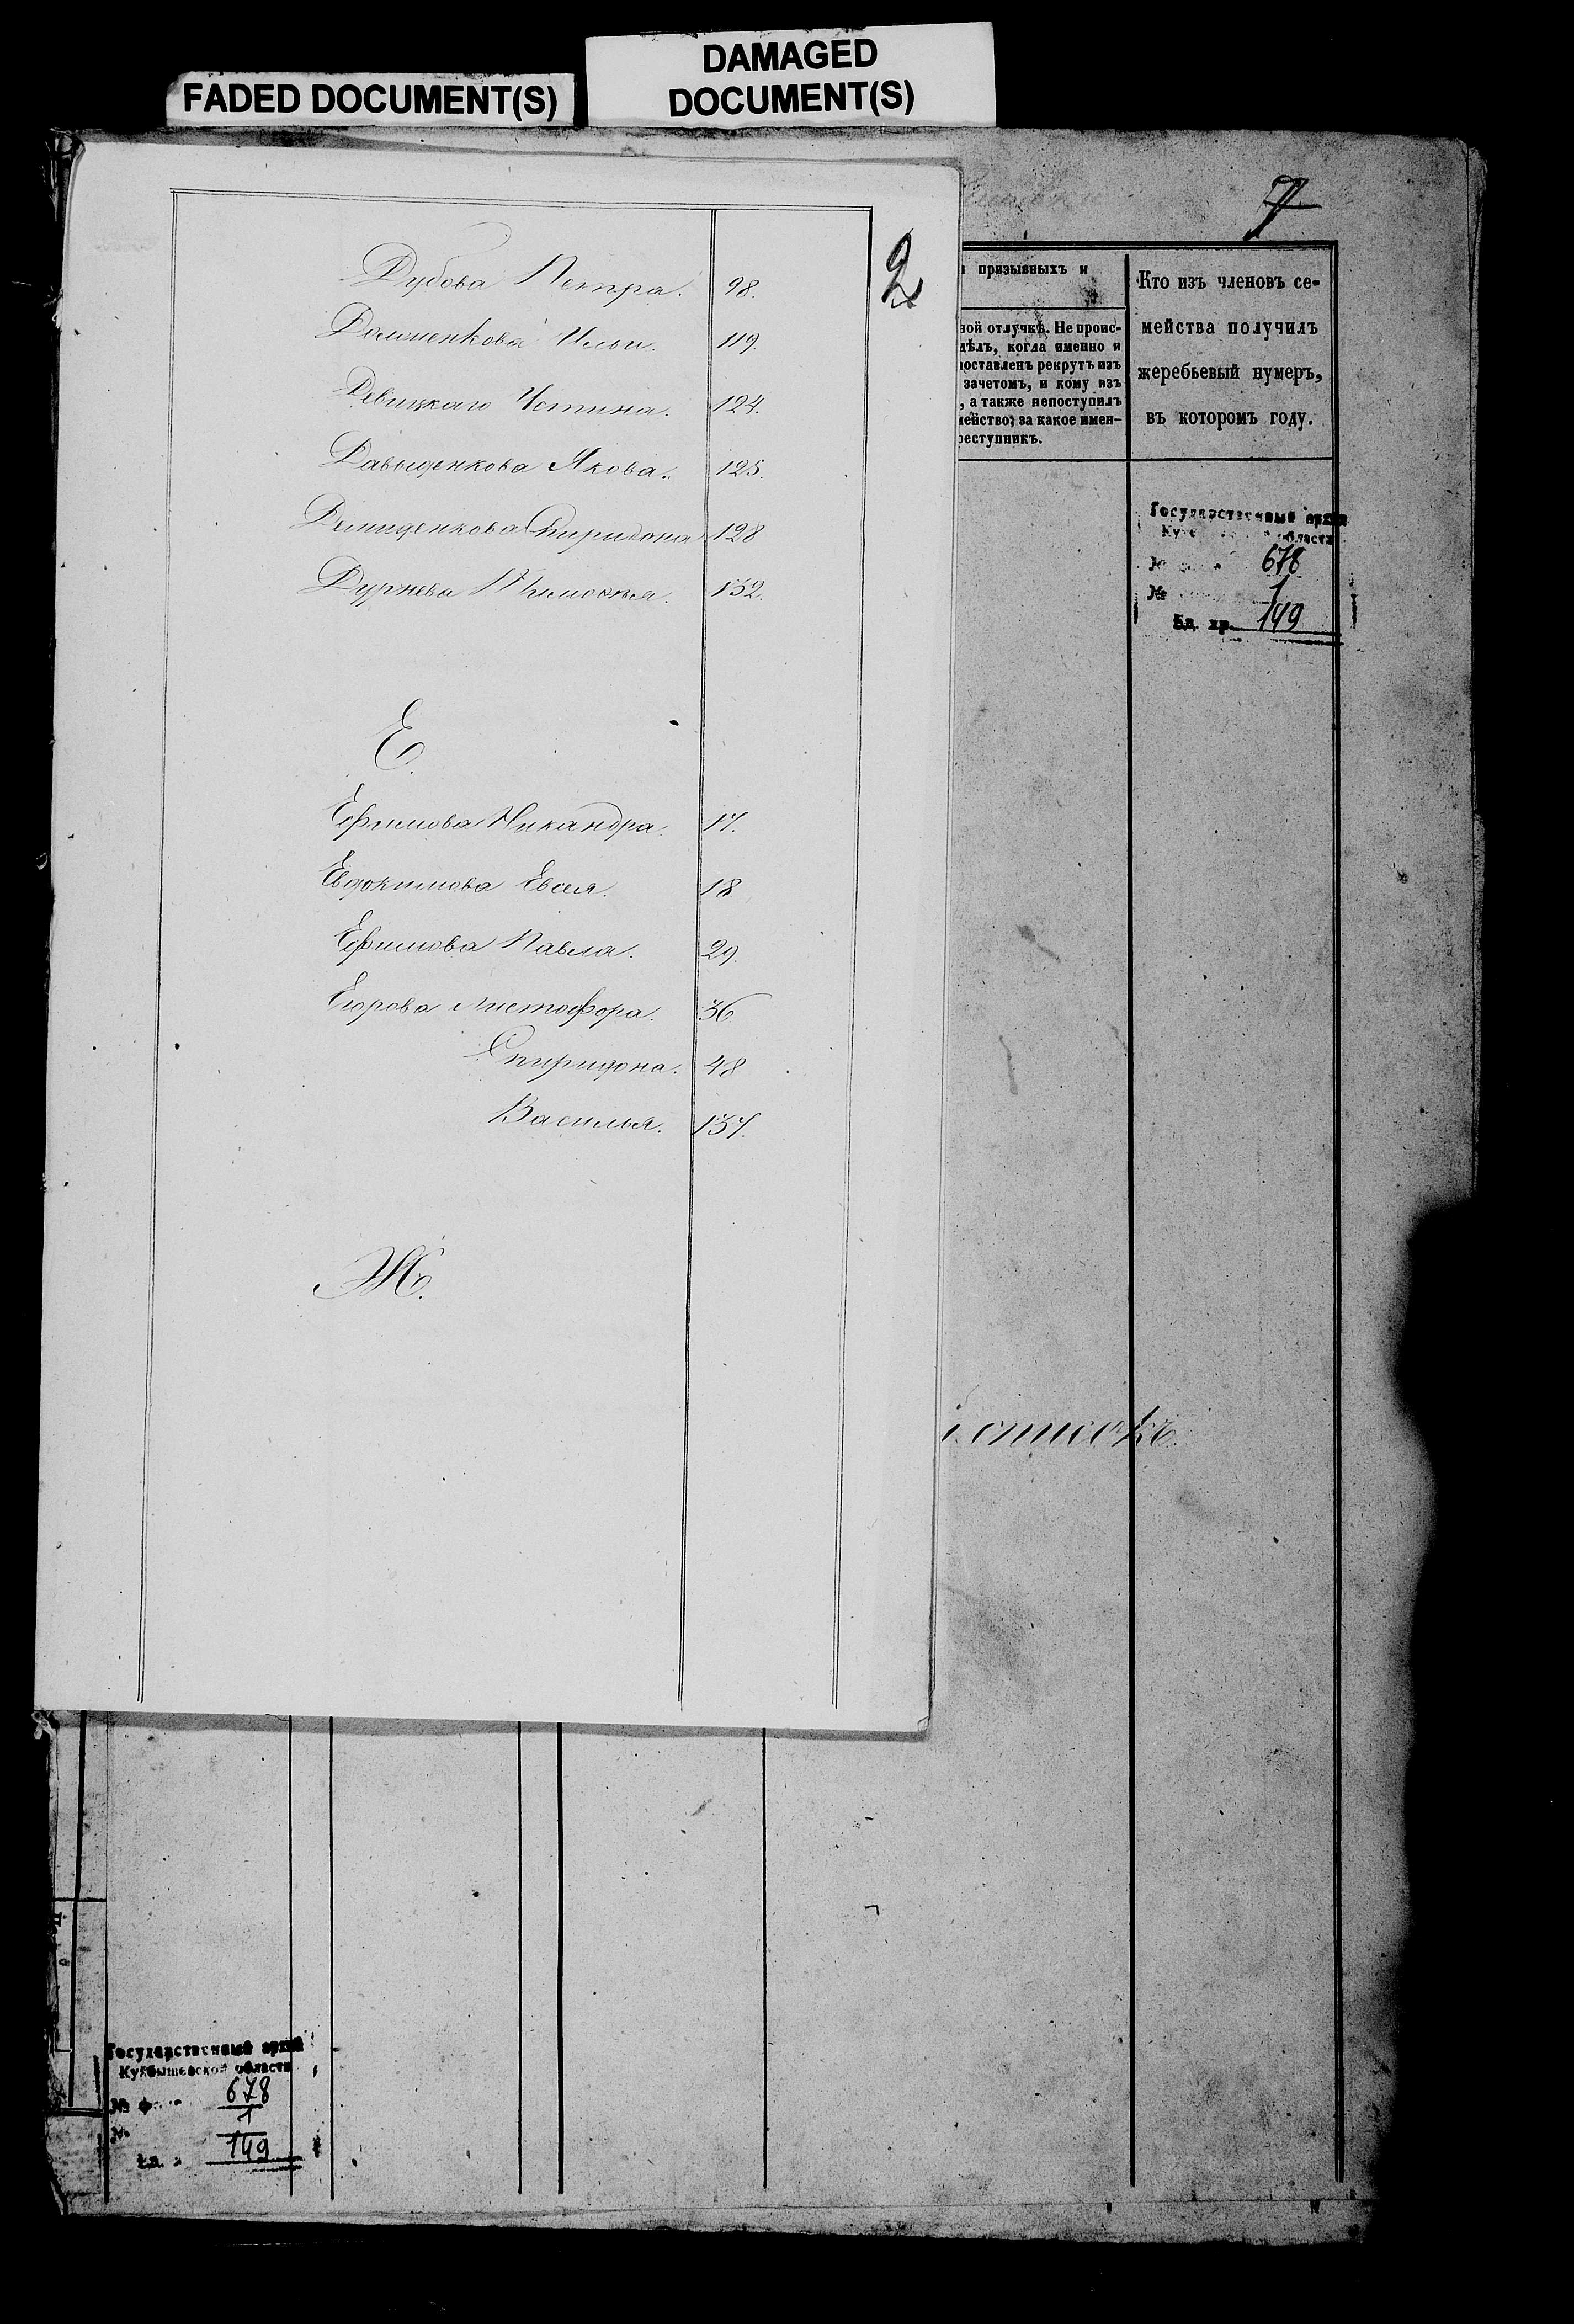 FADED DOCUMENT(S)
DAMAGED
DOCUMENT(S)
2
Дубова Петра. 98.
Ильи. 119.
Девицкаго Устина. 124.
Давыденкова Якова. 125.
Демиденкова Спиридона 128
Дурнева 132.
Е.
Ефимова Никандра. 17.
Евдокимова Евсея. 18
Ефимова Павла. 29.
Егорова 36
Спиридона. 48
Василья. 137.
Ж.
7
призывныхъ и
ной отлучкѣ. Не проис-
дѣлъ, когда именно и
поставленъ рекрутъ изъ
зачетомъ, и кому изъ
, а также непоступилъ
мейство; за какое имен-
реступникъ.
Кто изъ членовъ се-
мейства получилъ
жеребьевый нумеръ,
въ которомъ году.
Государственный архив
области
678
№ 1
Ед. хр. 149
списокъ.
Государственный архив
Куйбышевской области
№ ф 678
№ 1
149